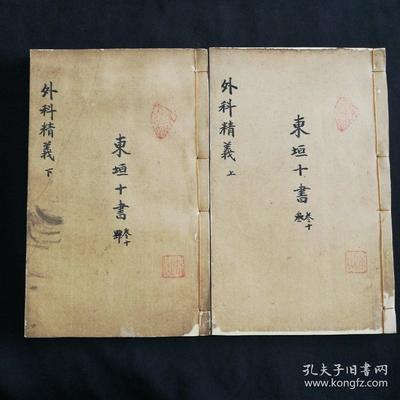 東垣十書
卷十
外科精義上
東垣十書
卷十
外科精義下
孔夫子旧书网
www.kongfz.com